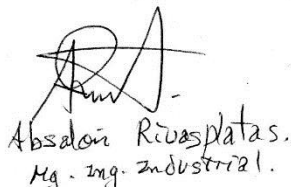 Absalón Rivasplatas.
Mg. Ing. Industrial.